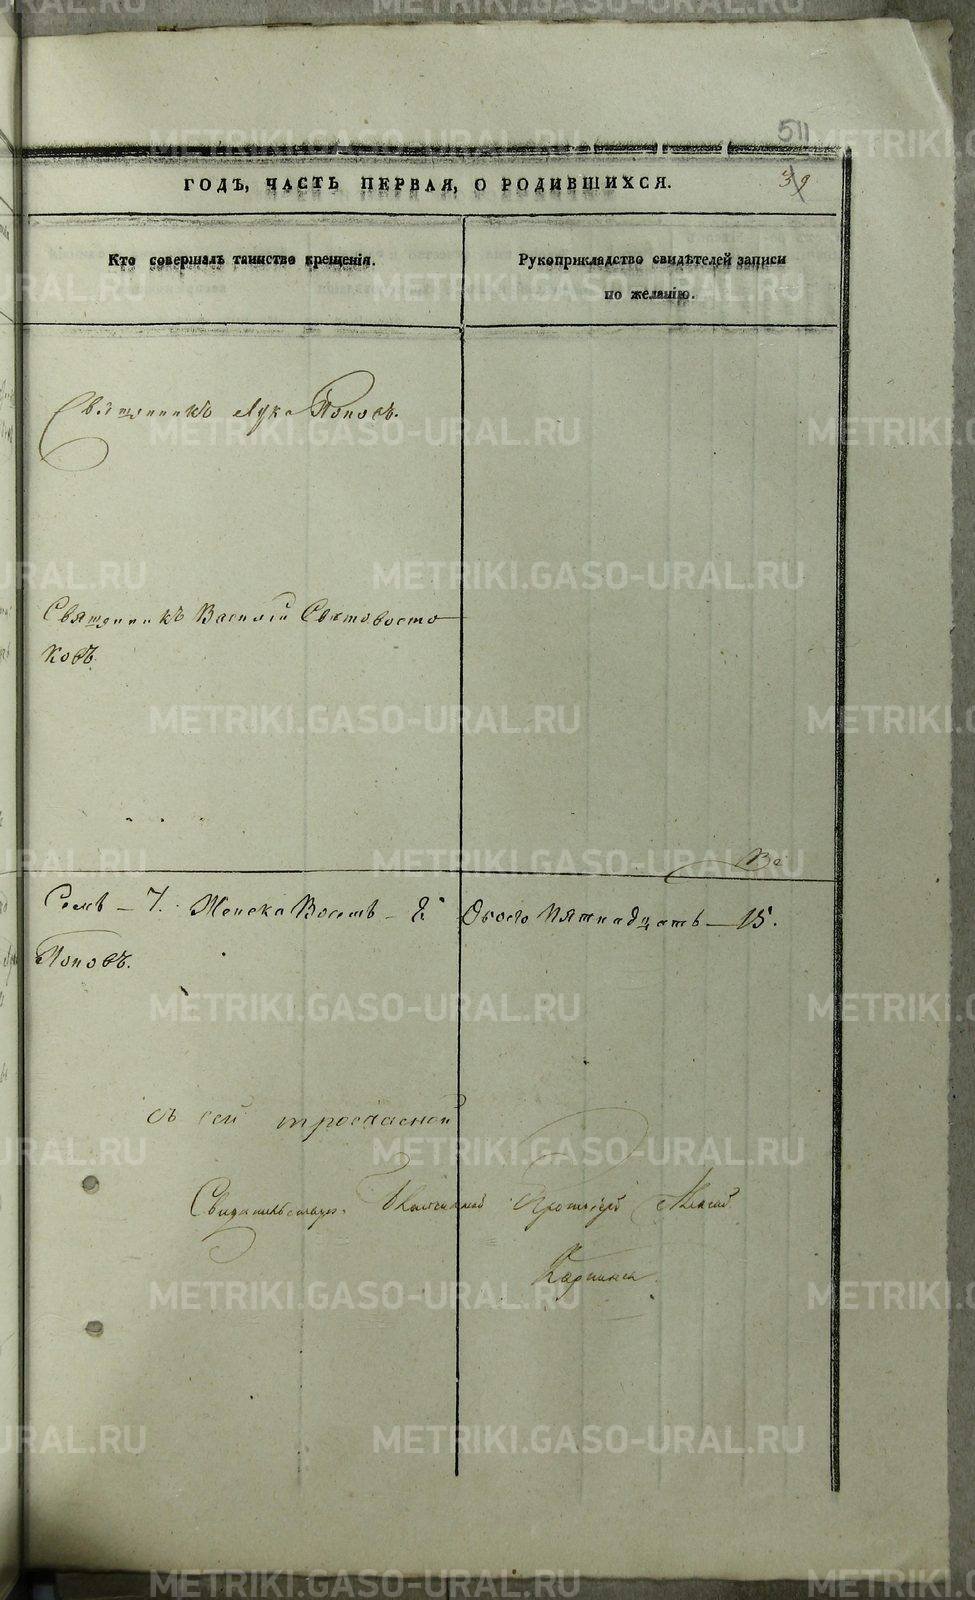 511
ГОДЪ, ЧАСТЬ ПЕРВАЯ, О РОДИВШИХСЯ.
39
Кто совершалъ таинство крещенія.
Рукоприкладство свидѣтелей записи
по желанію.
Священникъ Лука Поповъ.
Священникъ Василій Святовосто
ковъ.
Все
Семь – 7. Женска Восемь – 8. Обоего Пятнадцать – 15.
Поповъ.
съ сей
Свидѣтельствовалъ Протоіерей
METRIKI.GASO-URAL.RU